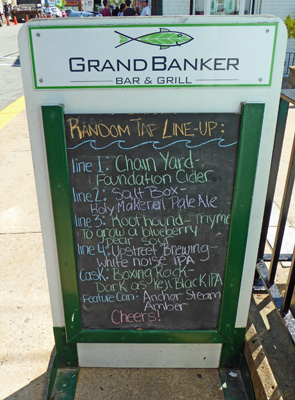 GRAND BANKER
BAR & GRILL
RANDOM TAP LINE-UP:
line 1: Chain Yard-
Foundation Cider
line 2: Salt Box-
Holy Makeral Pale Ale
line 3: Roof hound- Thyme
to grow a blueberry
pear sour
line 4: Upstreet Brewing-
white noise IPA
Cask: Boxing Rock-
Dark as Key Black IPA
Feature Can: Anchor Steam
Amber
Cheers!